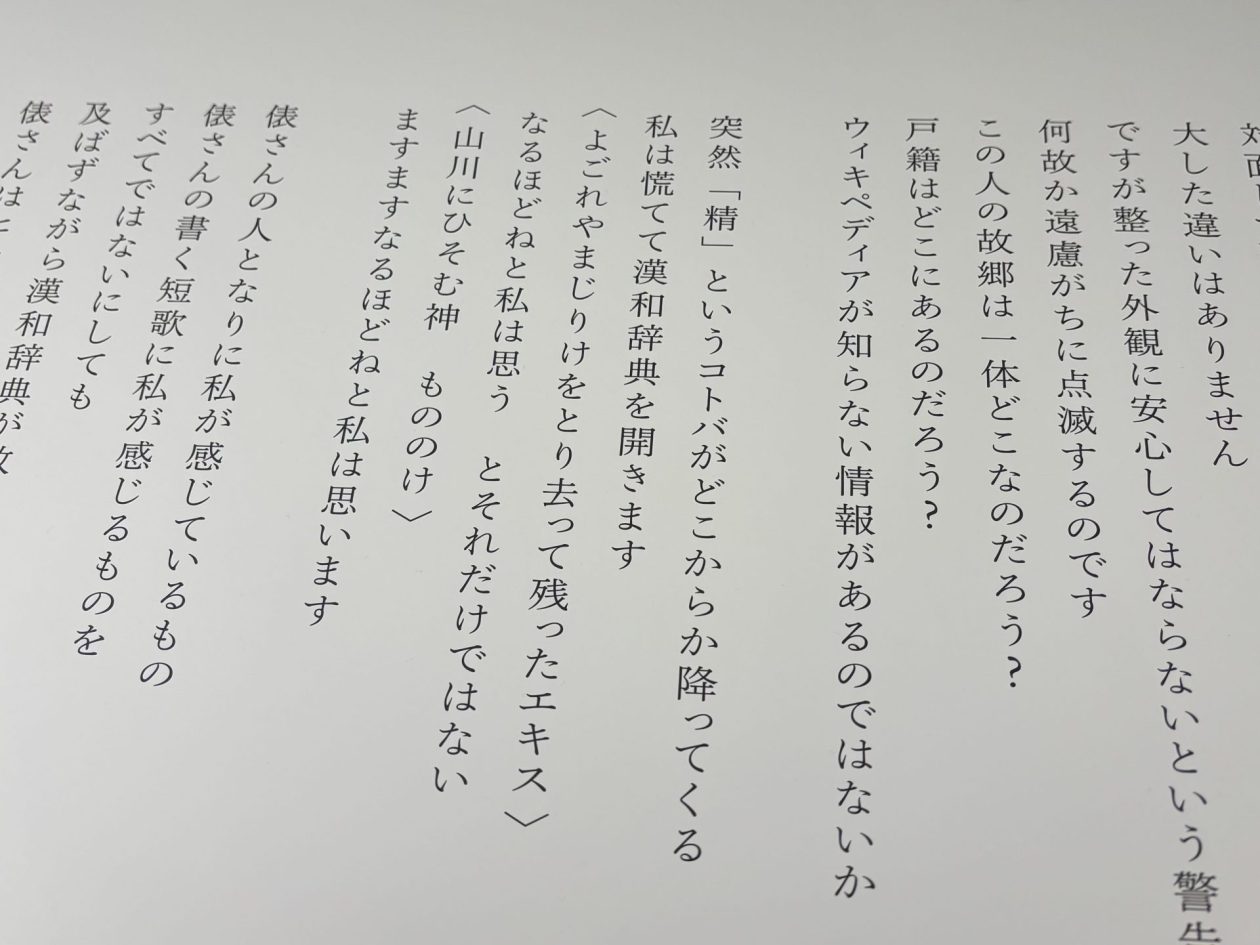 対面し
大した違いはありません
ですが整った外観に安心してはならないという警告
何故か遠慮がちに点滅するのです
この人の故郷は一体どこなのだろう?
戸籍はどこにあるのだろう?
ウィキペディアが知らない情報があるのではないか
突然「精」というコトバがどこからか降ってくる
私は慌てて漢和辞典を開きます
〈よごれやまじりけをとり去って残ったエキス〉
なるほどねと私は思う　とそれだけではない
〈山川にひそむ神　もののけ〉
ますますなるほどねと私は思います
俵さんの人となりに私が感じているもの
俵さんの書く短歌に私が感じるものを
すべてではないにしても
及ばずながら漢和辞典が
俵さんは